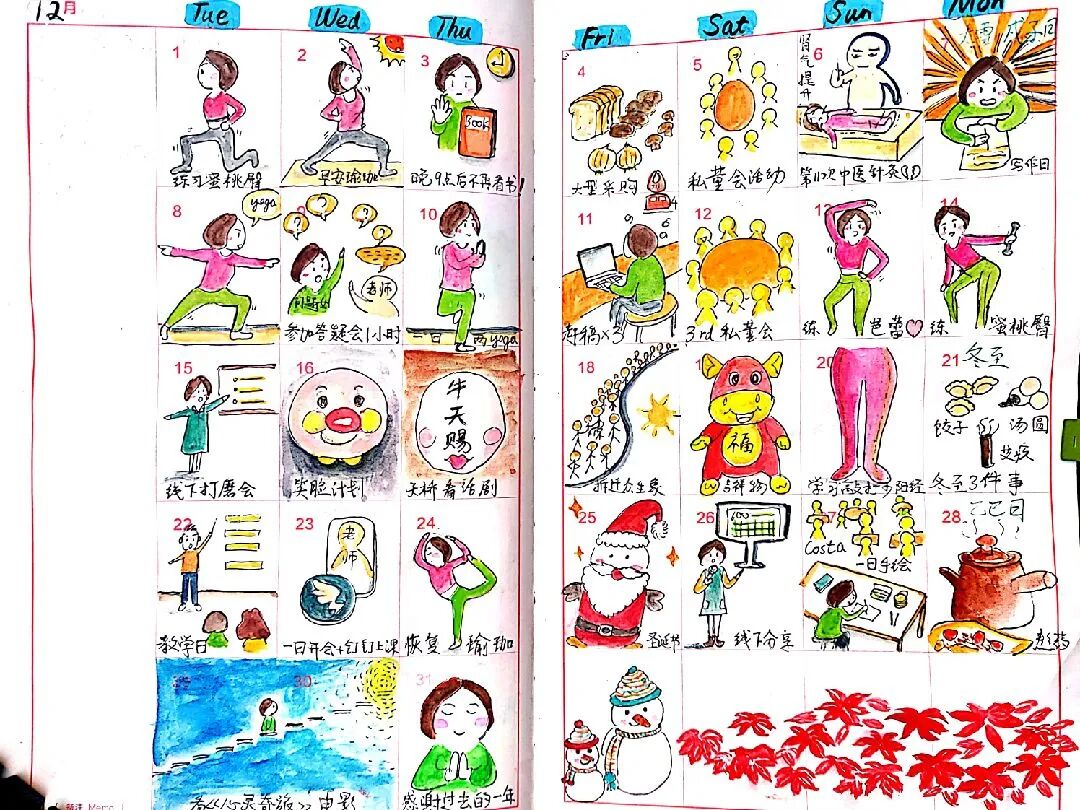 12月
Tue
Wed
Thu
Fri
Sat
Sun
Mon
1
练习蜜桃臀
2
早安瑜伽
3
BOOK
晚9点后不再看书!
4
大型采购
5
私董会活动
6
肾气提升
第11次中医针灸
写作日
8
yoga
9
?
?
?
?
老师
参加答疑会1小时
10
一日两yoga
11
12
3rd 私董会
13
练芭蕾
14
练蜜桃臀
15
线下打磨会
16
笑脸计划
17
牛天赐
天桥看话剧
18
众生象
19
福
吉祥物
20
21
冬至
饺子
汤圆
艾灸
冬至3件事
22
教学日
23
老师
24
恢复瑜珈
25
圣诞节
26
线下分享
27
Costa
一日手绘
28
30
看《心灵奇旅》电影
31
感谢过去的一年
Memo